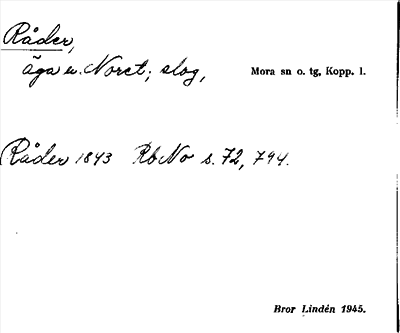 Råder,
äga u. Noret; slog, Mora sn o. tg, Kopp. l.
Råder 1843 Rb No s. 72, 794.
Bror Lindén 1945.